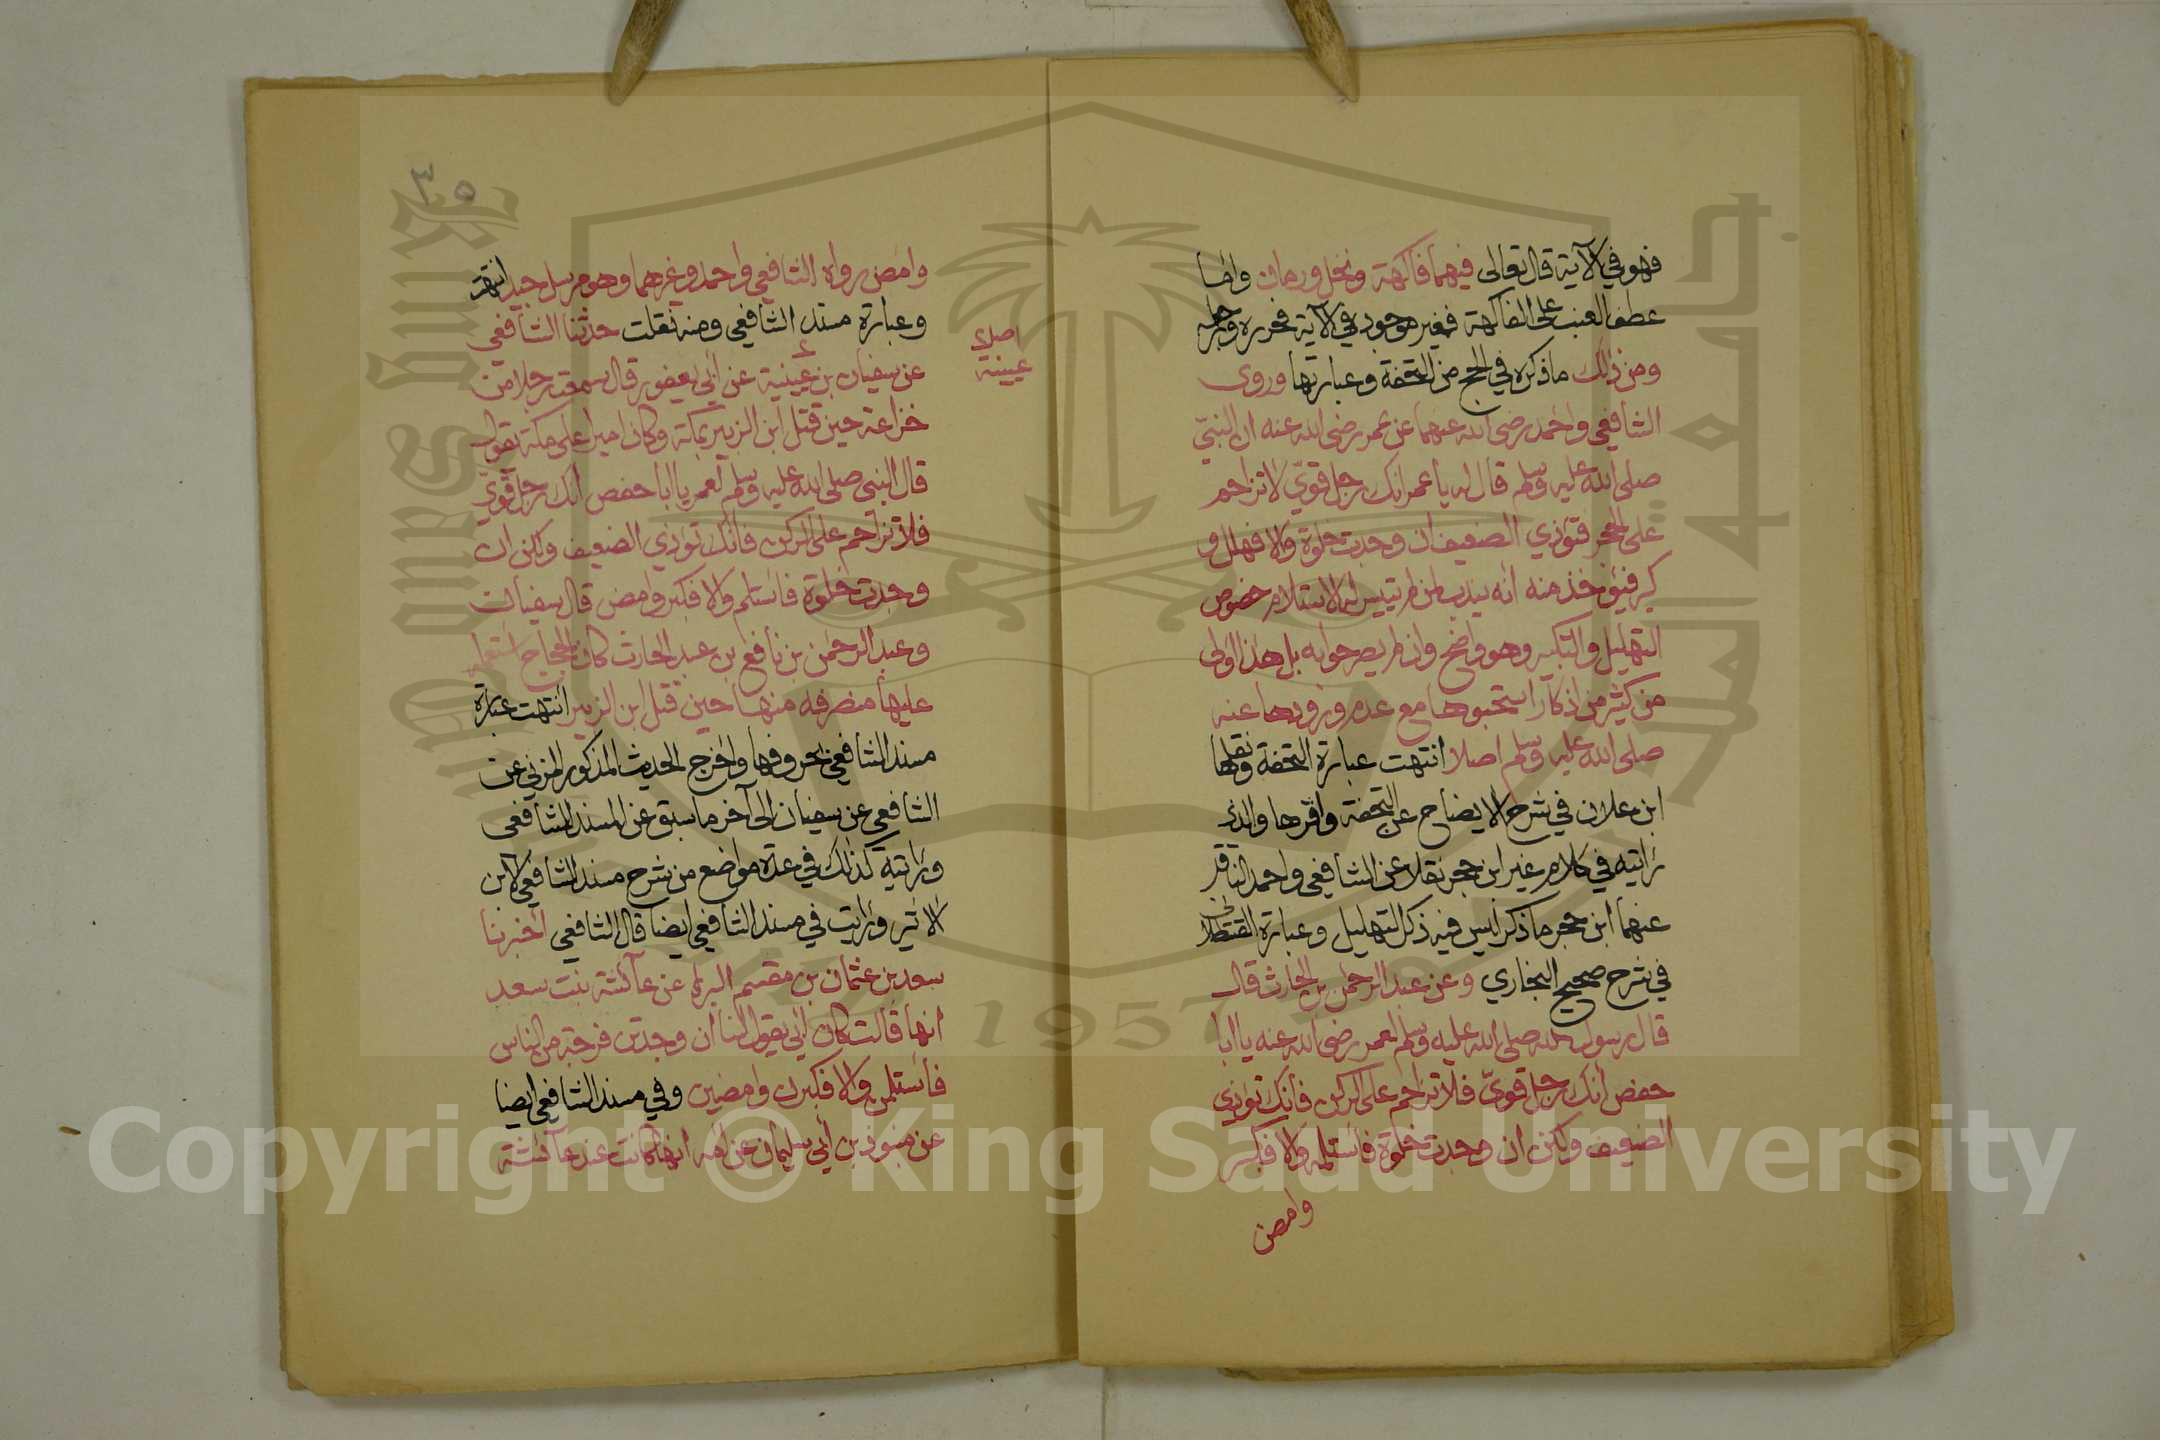 فهو في الآية قال تعالى فيهما فاكهة ونخل ورمان واما
عطف العنب على الفاكهة فغير موجود في الآية فحرره وراجعه
ومن ذلك ما ذكره في الحج من التحفة وعبارتها وروى
الشافعي واحمد رضي الله عنهما عن عمر رضي الله عنه ان النبيّ
صلى الله عليه وسلم قال له يا عمر انك رجل قويّ لا تزاحم
على الحجر فتؤذي الضعيف ان وجدت خلوة والا فهلل و
كبر فيؤخذ منه انه يندب لمن لم يتيسر له الاستلام خصوص
التهليل والتكبير وهو واضح وان لم يصرحوا به بل هذا اولى
من كثير من اذكار استحبوها مع عدم ورودها عنه
صلى الله عليه وسلم اصلا انتهت عبارة التحفة ونقلها
ابن علان في شرح الايضاح عن التحفة واقرها والذي
رايته في كلام غير ابن حجر نقلا عن الشافعي واحمد الناقل
عنهما ابن حجر ما ذكر ليس فيه ذكر التهليل وعبارة القسطلاني
في شرح صحيح البخاري وعن عبد الرحمن بن الحارث قال
قال رسول الله صلى الله عليه وسلم لعمر رضي الله عنه يا ابا
حفص انك رجل قويّ فلا تزاحم على الركن فانك تؤذي
الضعيف ولكن ان وجدت خلوة فاستلمه والا فكبر
وامض
٣٥
وامض رواه الشافعي واحمد وغيرهما وهو مرسل جيد انتهت
وعبارة مسند الشافعي ومنه نقلت حدثنا الشافعي
عن سفيان بن عيينة عن ابي يعفور قال سمعت رجلا من
خزاعة حين قتل ابن الزبير بمكة وكان اميرا على مكة يقول
قال النبي صلى الله عليه وسلم لعمر يا ابا حفص انك رجل قويّ
فلا تزاحم على الركن فانك تؤذي الضعيف ولكن ان
وجدت خلوة فاستلم والا فكبر وامض قال سفيان
وعبد الرحمن بن نافع بن عبد الحارث كان الحجاج استعمله
عليها منصرفه منها حين قتل ابن الزبير انتهت عبارة
مسند الشافعي بحروفها واخرج الحديث المذكور المزني عن
الشافعي عن سفيان الى آخر ما سبق عن المسند للشافعي
ورايته كذلك في عدة مواضع من شرح مسند الشافعي لابن
الاثير ورايت في مسند الشافعي ايضا قال الشافعي اخبرنا
سعد بن عثمان بن مقسم البري عن عآئشة بنت سعد
انها قالت كان ابي يقول لنا ان وجدتن فرجة من الناس
فاستلمن والا فكبرن وامضين وفي مسند الشافعي ايضا
عن منبوذ بن ابي سليمان عن امه انها كانت عند عآئشة
اصله
عيينة
King Saud University
جامعة الملك سعود
1957
Copyright © King Saud University